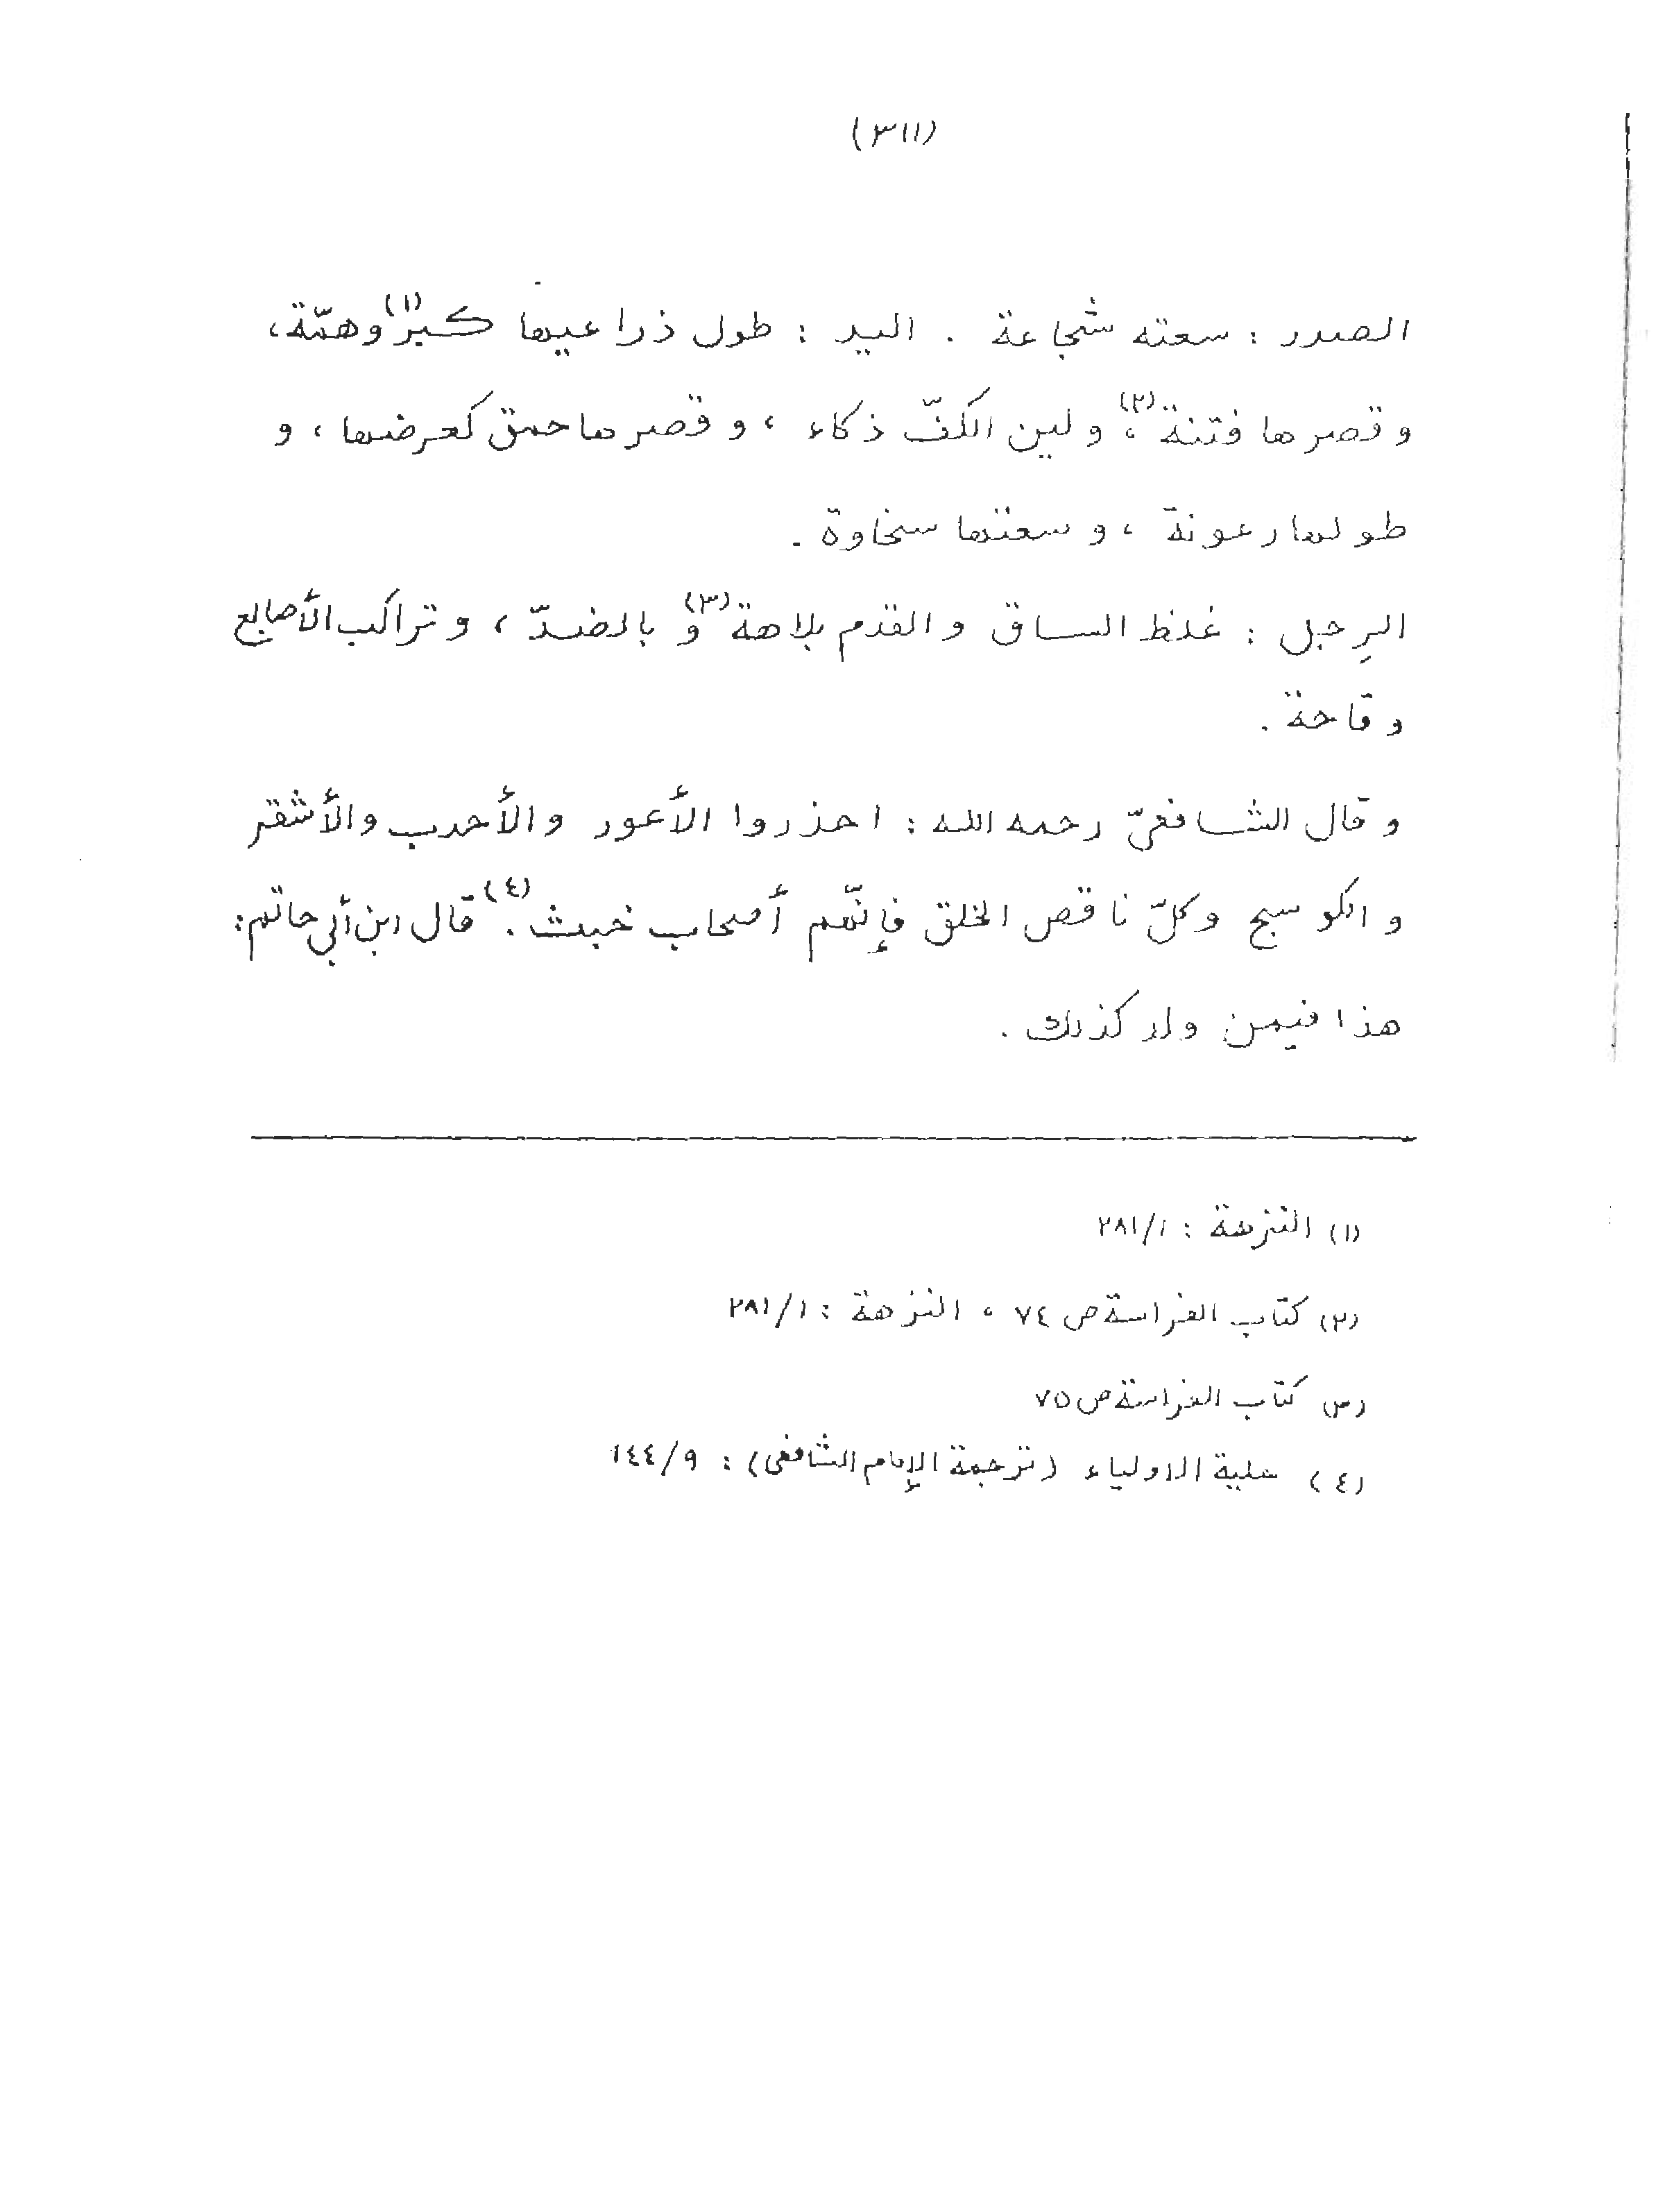 (٣١١)
الصدر : سعته شجاعة . اليد : طول ذراعيها كبر(١) وهمّة،
وقصرها فتنة(٢)، ولين الكفّ ذكاء ، وقصرها حمق كعرضها ، و
طولها رعونة ، وسعتها سخاوة .
الرِجل : غلظ الساق والقدم بلاهة(٣) و بالضدّ ، وتراكب الأصابع
وقاحة .
وقال الشافعيّ رحمه الله : احذروا الأعور والأحدب والأشقر
والكوسج وكلّ ناقص الخلق فإنّهم أصحاب خبث(٤). قال ابن أبي حاتم:
هذا فيمن ولد كذلك .
(١) النزهة : ٢٨١/١
(٢) كتاب الفراسة ص ٧٤ ، النزهة : ٢٨١/١
(٣) كتاب الفراسة ص ٧٥
(٤) حلية الاولياء (ترجمة الإمام الشافعي) : ١٤٤/٩